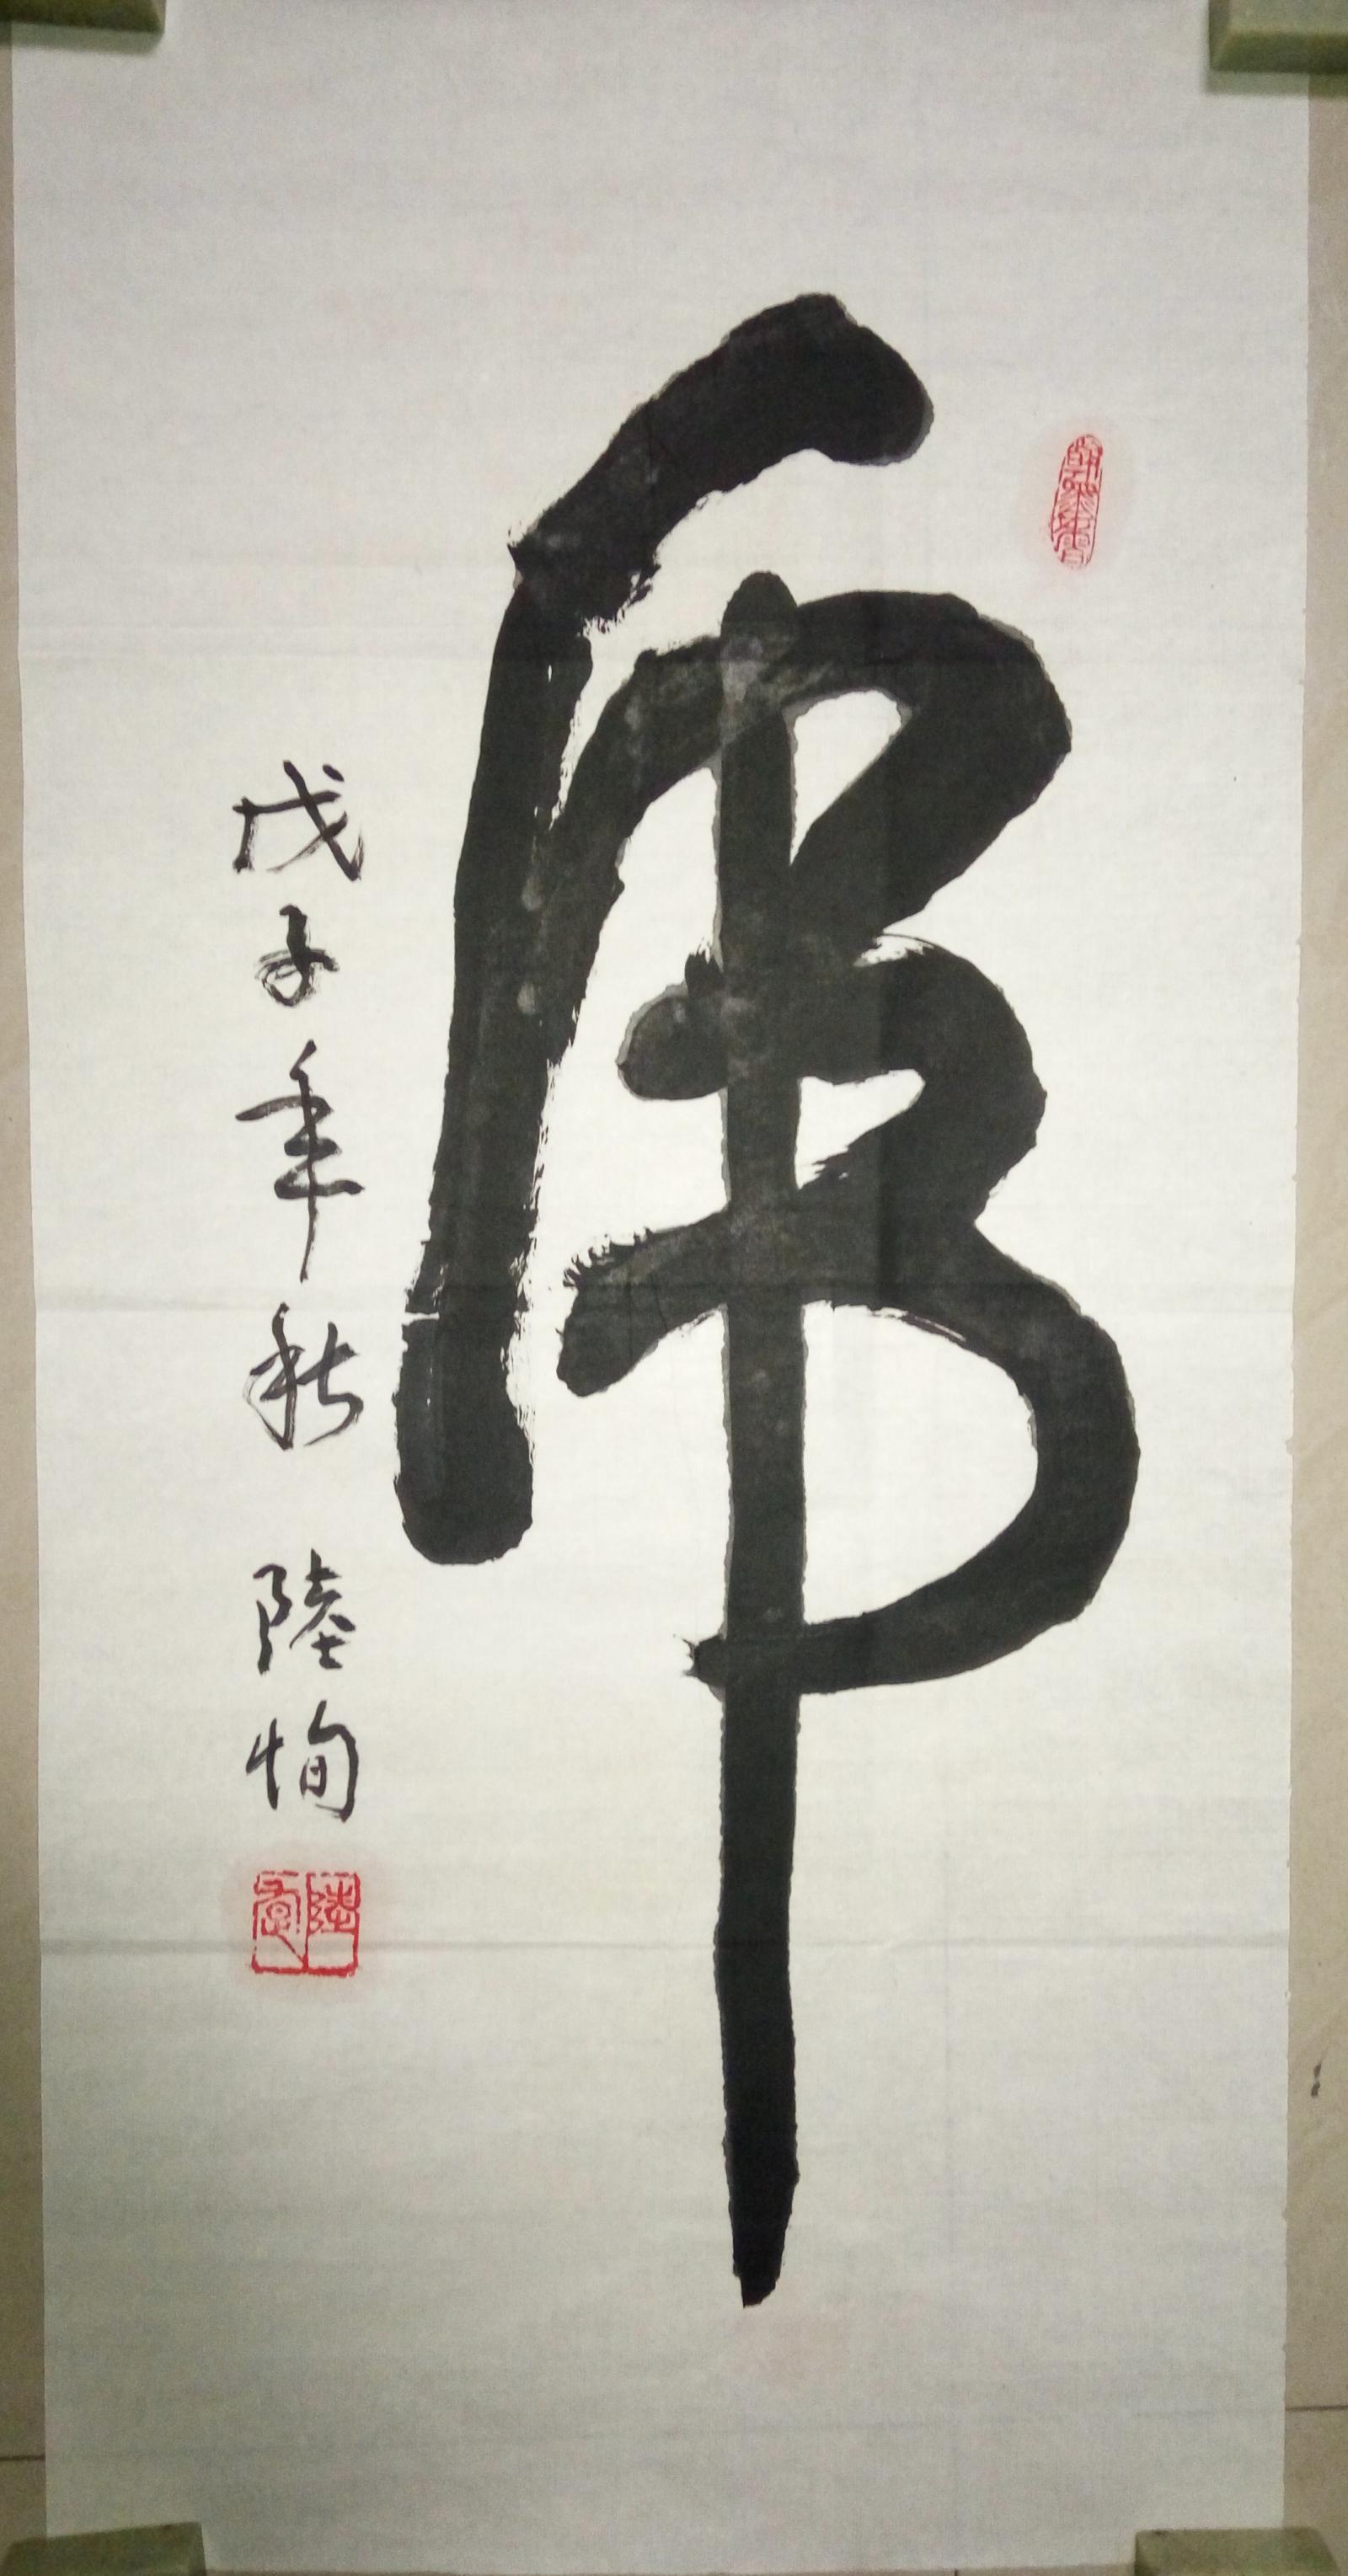 佛
戊子年秋 陸恂